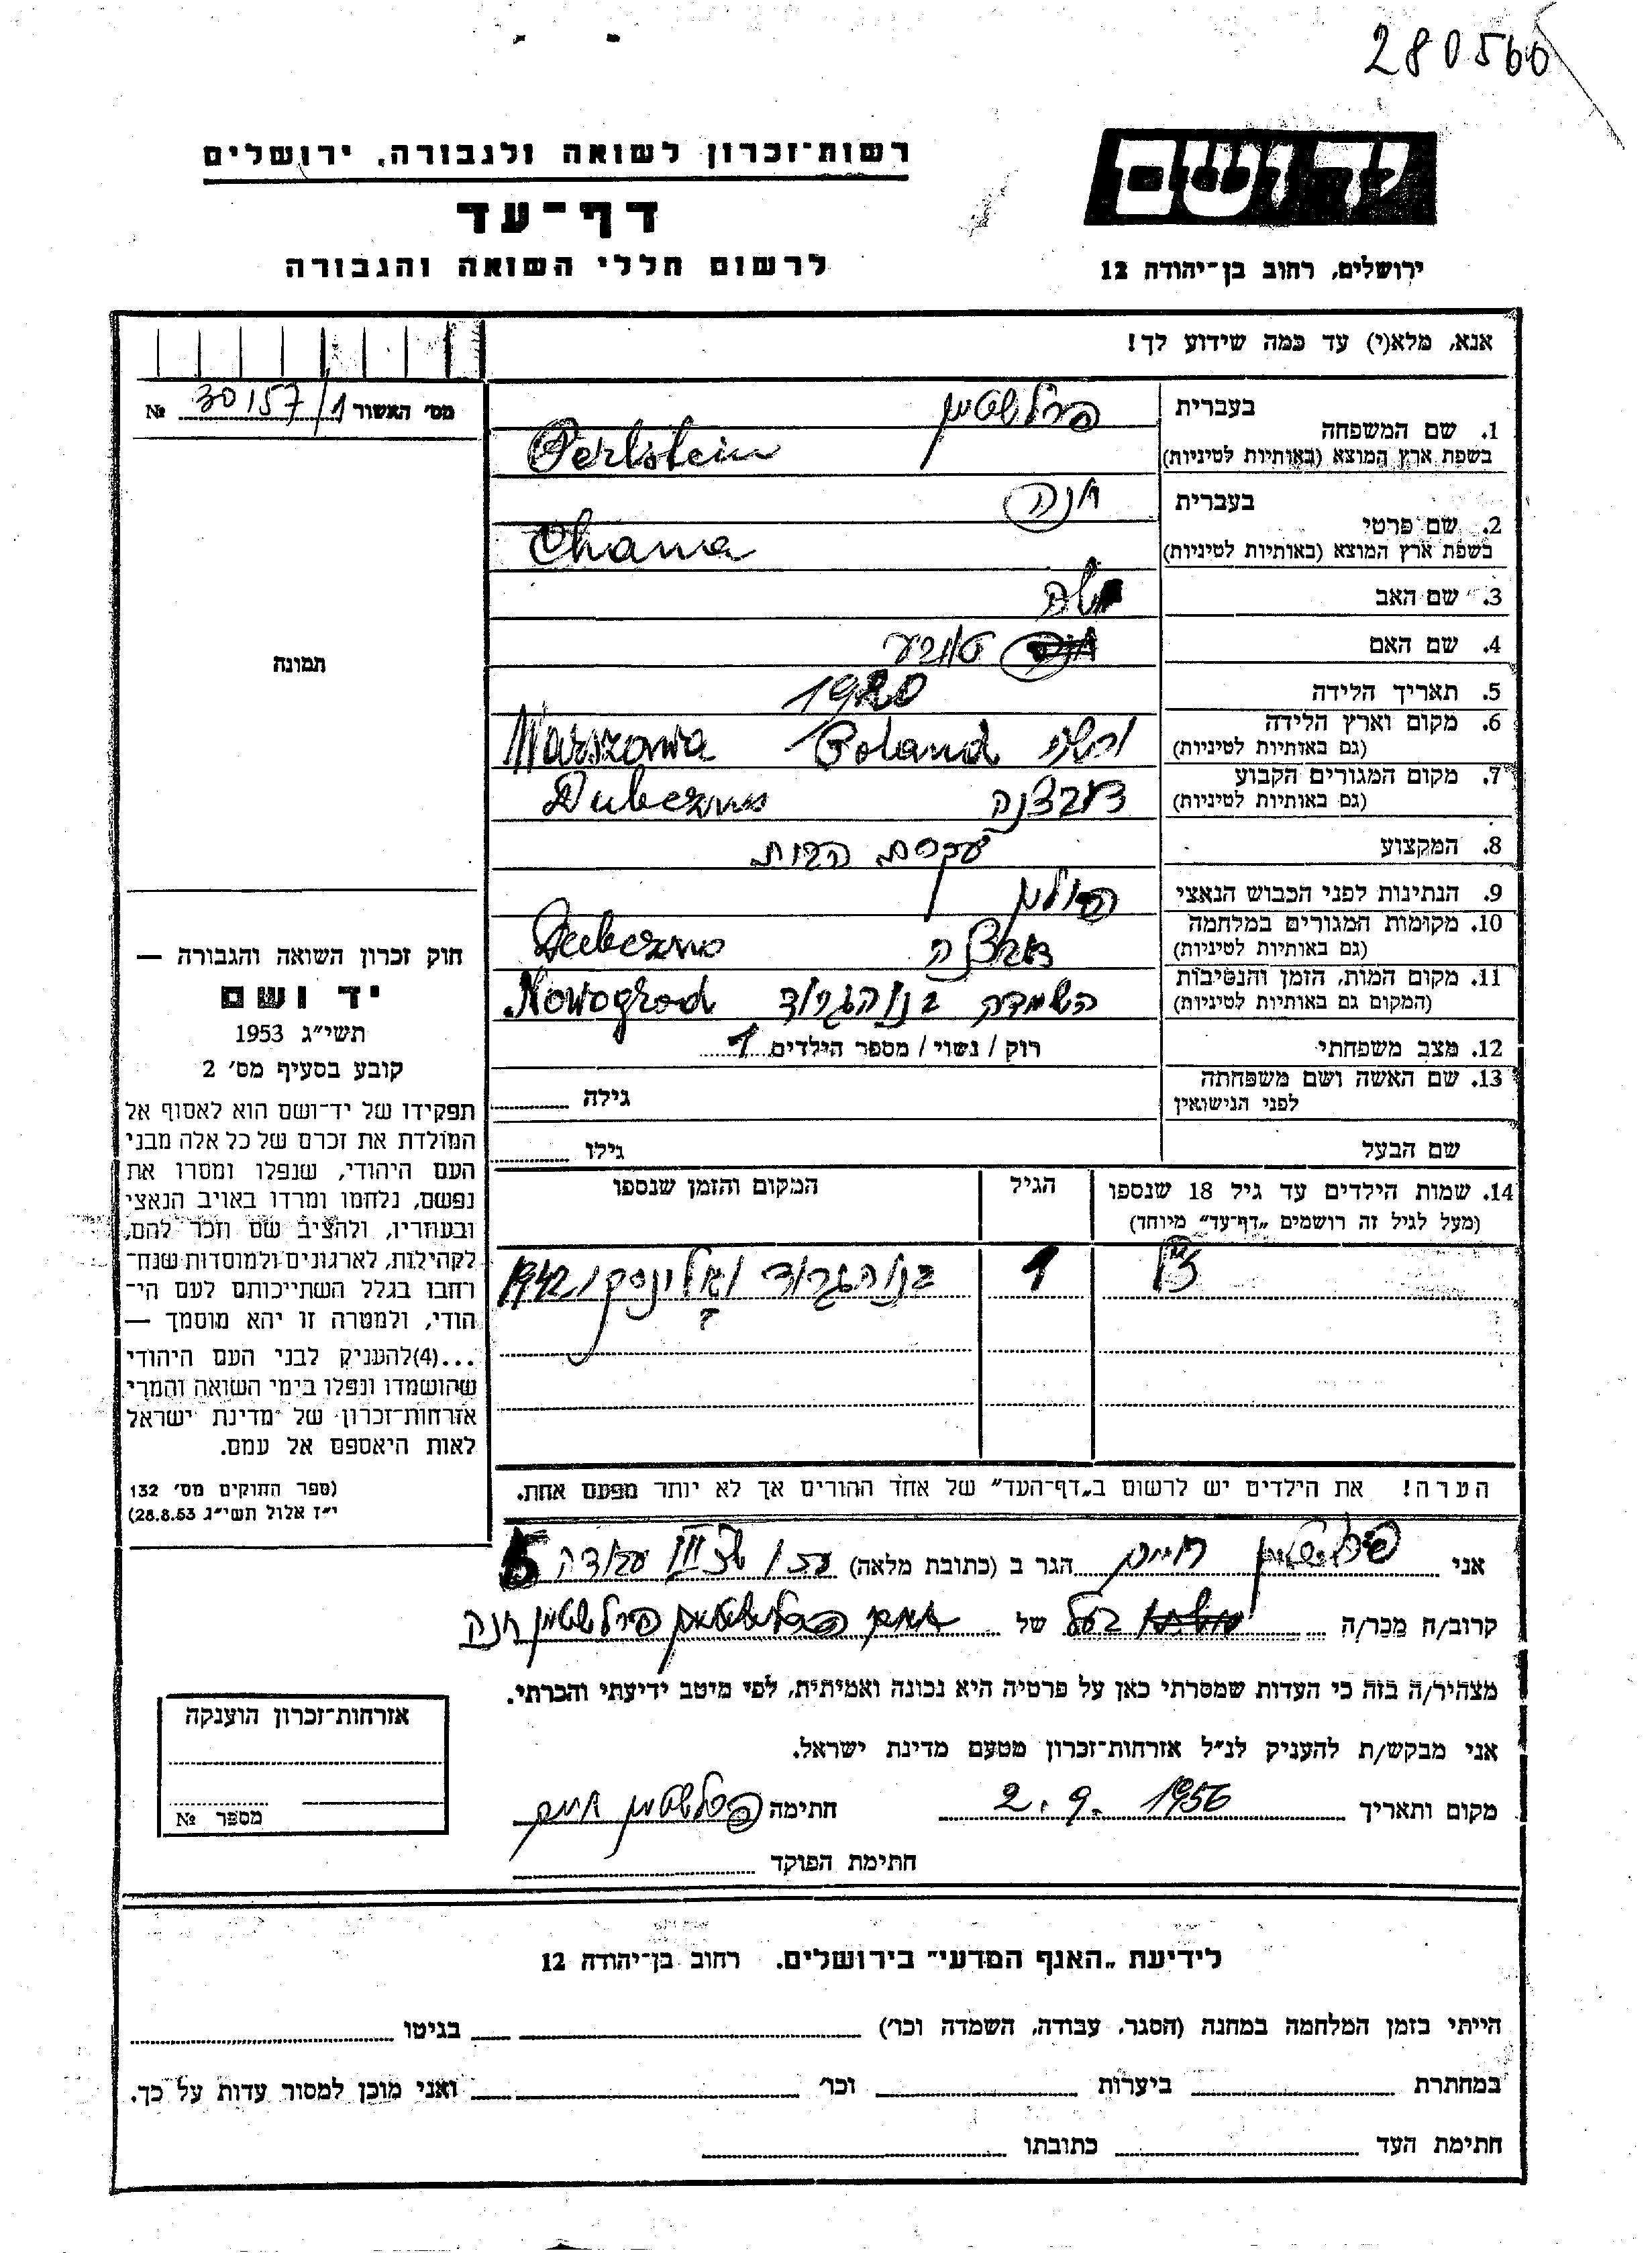 280560
רשות־זכרון לשואה ולגבורה, ירושלים
דף־עד
לרשום חללי השואה והגבורה
יד ושם
ירושלים, רחוב בן־יהודה 12
אנא, מלא(י) עד כמה שידוע לך!
מס׳ האשור 30157/1 №
1. שם המשפחה
בעברית פרלשטיין
בשפת ארץ המוצא (באותיות לטיניות) Perlstein
2. שם פרטי
בעברית חנה
בשפת ארץ המוצא (באותיות לטיניות) Chana
3. שם האב משה
4. שם האם טובע
5. תאריך הלידה 1920
6. מקום וארץ הלידה
(גם באותיות לטיניות) Poland Warszawa
7. מקום המגורים הקבוע
(גם באותיות לטיניות) Dubezno
8. המקצוע עקרת הבית
9. הנתינות לפני הכבוש הנאצי פולין
10. מקומות המגורים במלחמה
(גם באותיות לטיניות) Dubezno
11. מקום המות, הזמן והנסיבות
(המקום גם באותיות לטיניות) השמדה בנובהגרוד Nowogrod
12. מצב משפחתי רוק / נשוי / מספר הילדים 1
13. שם האשה ושם משפחתה
לפני הנישואין גילה
שם הבעל גילו
14. שמות הילדים עד גיל 18 שנספו
(מעל לגיל זה רושמים „דף־עד״ מיוחד)
הגיל
המקום והזמן שנספו
1 1942
הערה! את הילדים יש לרשום ב„דף־העד״ של אחד ההורים אך לא יותר מפעם אחת.
תמונה
חוק זכרון השואה והגבורה —
יד ושם
תשי״ג 1953
קובע בסעיף מס׳ 2
תפקידו של יד־ושם הוא לאסוף אל
המולדת את זכרם של כל אלה מבני
העם היהודי, שנפלו ומסרו את
נפשם, נלחמו ומרדו באויב הנאצי
ובעוזריו, ולהציב שם וזכר להם,
לקהילות, לארגונים ולמוסדות שנח־
רחבו בגלל השתייכותם לעם הי־
הודי, ולמטרה זו יהא מוסמך —
...(4)להעניק לבני העם היהודי
שהושמדו ונפלו בימי השואה והמרי
אזרחות־זכרון של מדינת ישראל
לאות היאספם אל עמם.
(ספר החוקים מס׳ 132
י״ז אלול תשי״ג 28.8.53)
אני פרלשטיין חיים הגר ב (כתובת מלאה) 5
קרוב/ה מכר/ה בעל של פרלשטיין חנה
מצהיר/ה בזה כי העדות שמסרתי כאן על פרטיה היא נכונה ואמיתית, לפי מיטב ידיעתי והכרתי.
אני מבקש/ת להעניק לנ״ל אזרחות־זכרון מטעם מדינת ישראל.
מקום ותאריך 2.9.1956 חתימה פרלשטיין חיים
חתימת הפוקד
אזרחות־זכרון הוענקה
מספר №
לידיעת „האנף המדעי״ בירושלים. רחוב בן־יהודה 12
הייתי בזמן המלחמה במחנה (הסגר, עבודה, השמדה וכו׳) בגיטו
במחתרת ביערות וכו׳ ואני מוכן למסור עדות על כך.
חתימת העד כתובתו